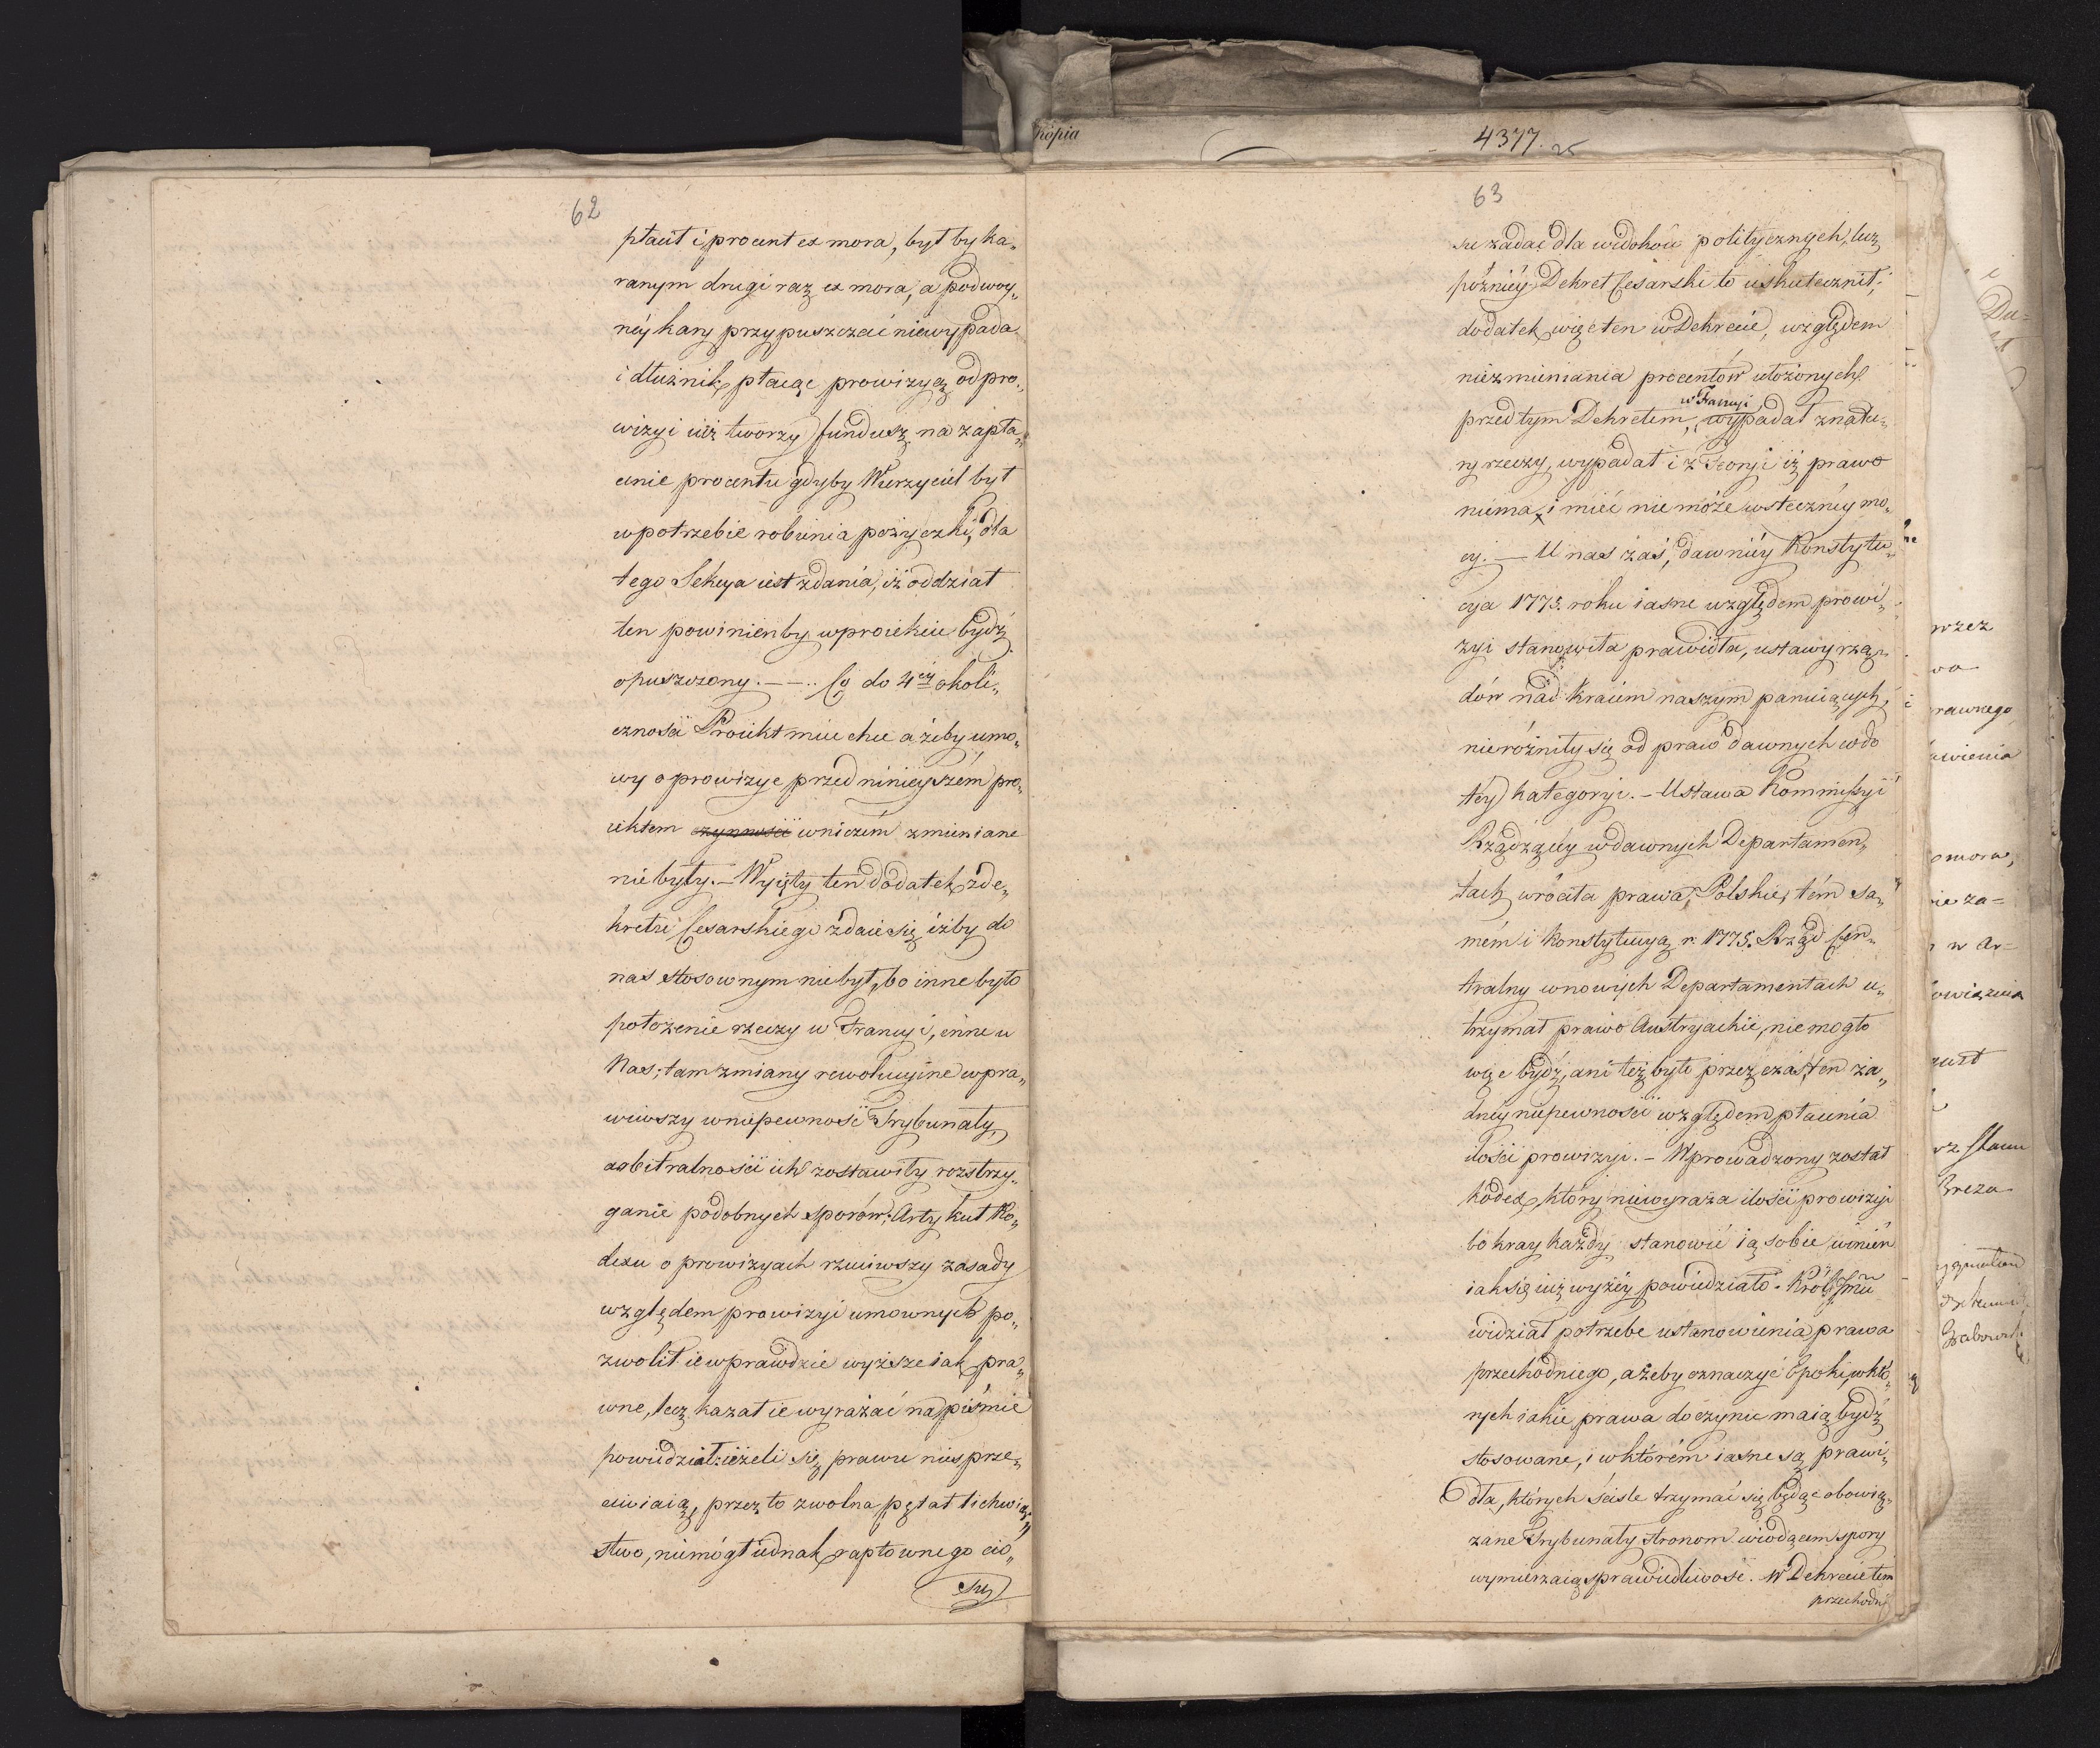 62
płacił i procent ex mora, był by ka„
ranym drugi raz ex mora, a podwoy„
néy kary przypuszczać niewypada
i dłużnik płacąc prowizyą od pro„
wizyi iuż tworzy fundusz na zapła„
cenie procentu gdyby Wierzyciel był
w potrzebie robienia pożyczki, dla
tego Sekcya iest zdania, iż oddział
ten powinienby w proiekcie bydź
opuszczony. — .. Co do 4éy okoli„
czności Proiekt mieć chce ażeby umo„
wy o prowizye przed ninieyszém pro„
iektem czynności w niczém zmieniane
nie były. — Wyięty ten dodatek z de„
kretu Cesarskiego zdaie się iżby do
nas stosownym nie był, bo inne było
położenie rzeczy w Francyi, inne u
Nas; tam zmiany rewolucyine wpra„
wiwszy w niepewność Trybunały,
arbitralności ich zostawiły rozstrzy„
ganie podobnych sporów; Artykuł Ko„
dexu o prowizyach rzuciwszy zasady
względem prowizyi umownych po„
zwolił ie wprawdzie wyższe iak pra„
wne, lecz kazał ie wyrażać na piśmie
powiedział: ieżeli się prawu nie sprze„
ciwiaią, przez to zwolna pętał lichwiar„
stwo, nie mógł iednak raptownego cio„
su
kopia
4377.
63
su zadać dla widoków politycznych, lecz
późniéy Dekret Cesarski to uskutecznił;
dodatek więc ten w Dekrecie, względem
niezmieniania procentów ułożonych
przed tym Dekretem, w Francyi wypadał z natu„
ry rzeczy, wypadał i z Teoryi iż prawo
niema, i mieć nie może wsteczney mo„
cy. — U nas zaś, dawniéy Konstytu„
cya 1775. roku iasne względem prowi„
zyi stanowiła prawidła, ustawy rzą„
dów nad kraiem naszym panuiących,
nieróżniły się od praw dawnych co do
téy kategoryi. — Ustawa Kommissyi
Rządzącéy w dawnych Departamen„
tach wróciła prawa Polskie, tém sa„
mém i Konstytucyą r. 1775. Rząd Cen„
tralny w nowych Departamentach u„
trzymał prawo Austryackie, nie mogło
więc bydź, ani też było przez czas ten ża„
dnéy niepewności względem płacenia
ilości prowizyi. — Wprowadzony został
Kodex, który niewyraża ilości prowizyi
bo kray każdy stanowić ią sobie winien
iak się iuż wyżéy powiedziało. Król Jmć
widział potrzebe ustanowienia prawa
przechodniego, ażeby oznaczyć Epoki, w któ„
rych iakie prawa do czynu maią bydź
stosowane, i w którém iasne są prawi„
dła, których ściśle trzymać się będąc obowią„
zane Trybunały stronom wiodącem spory
wymierzaią sprawiedliwość. W Dekrecie tém
przechodn